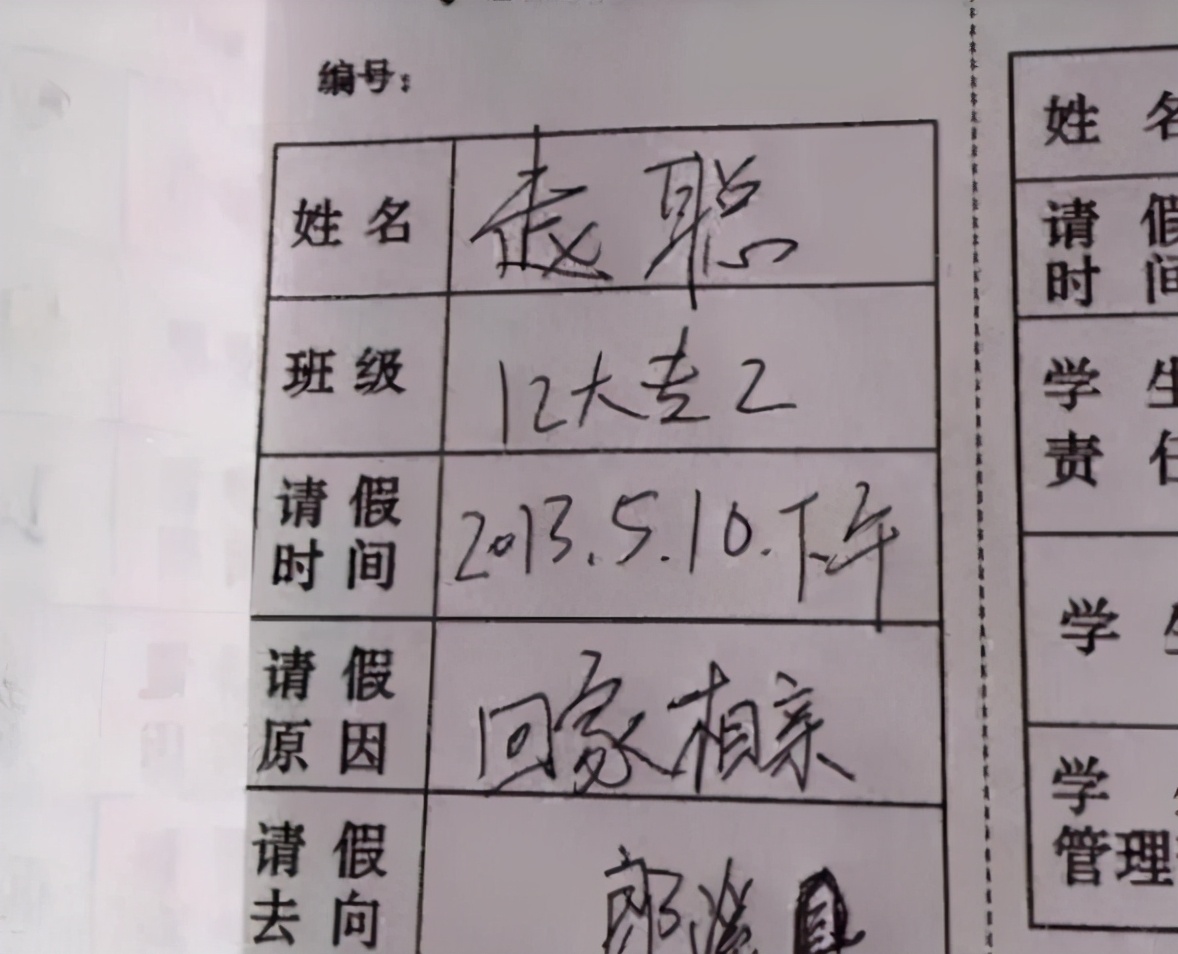 编号:
姓名 赵聪
班级 12大专2
请假时间 2013.5.10.下午
请假原因 回家相亲
请假去向
姓名
请假时间
学生
责任
学
学
管理